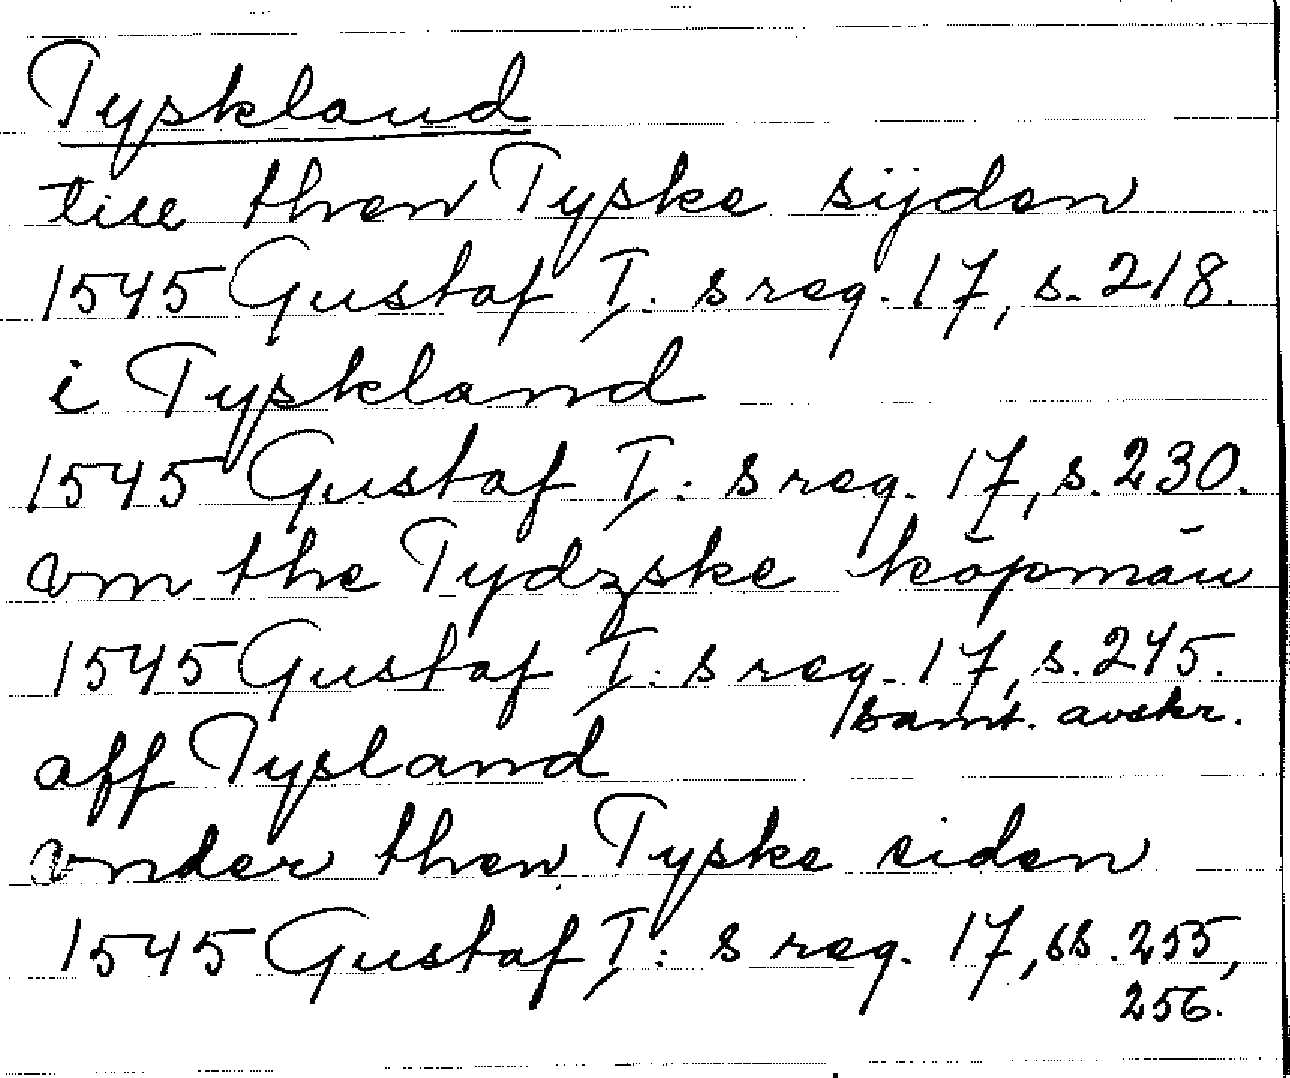 Tyskland
till then Tyske sijden
1545 Gustaf I: s reg. 17, s. 218.
i Tyskland
1545 Gustaf I: s reg. 17, s. 230.
om the Tydzske köpmän
1545 Gustaf I: s reg. 17, s. 245.
samt. avskr.
aff Tysland
vnder then Tyske siden
1545 Gustaf I: s reg. 17, ss. 255,
256.